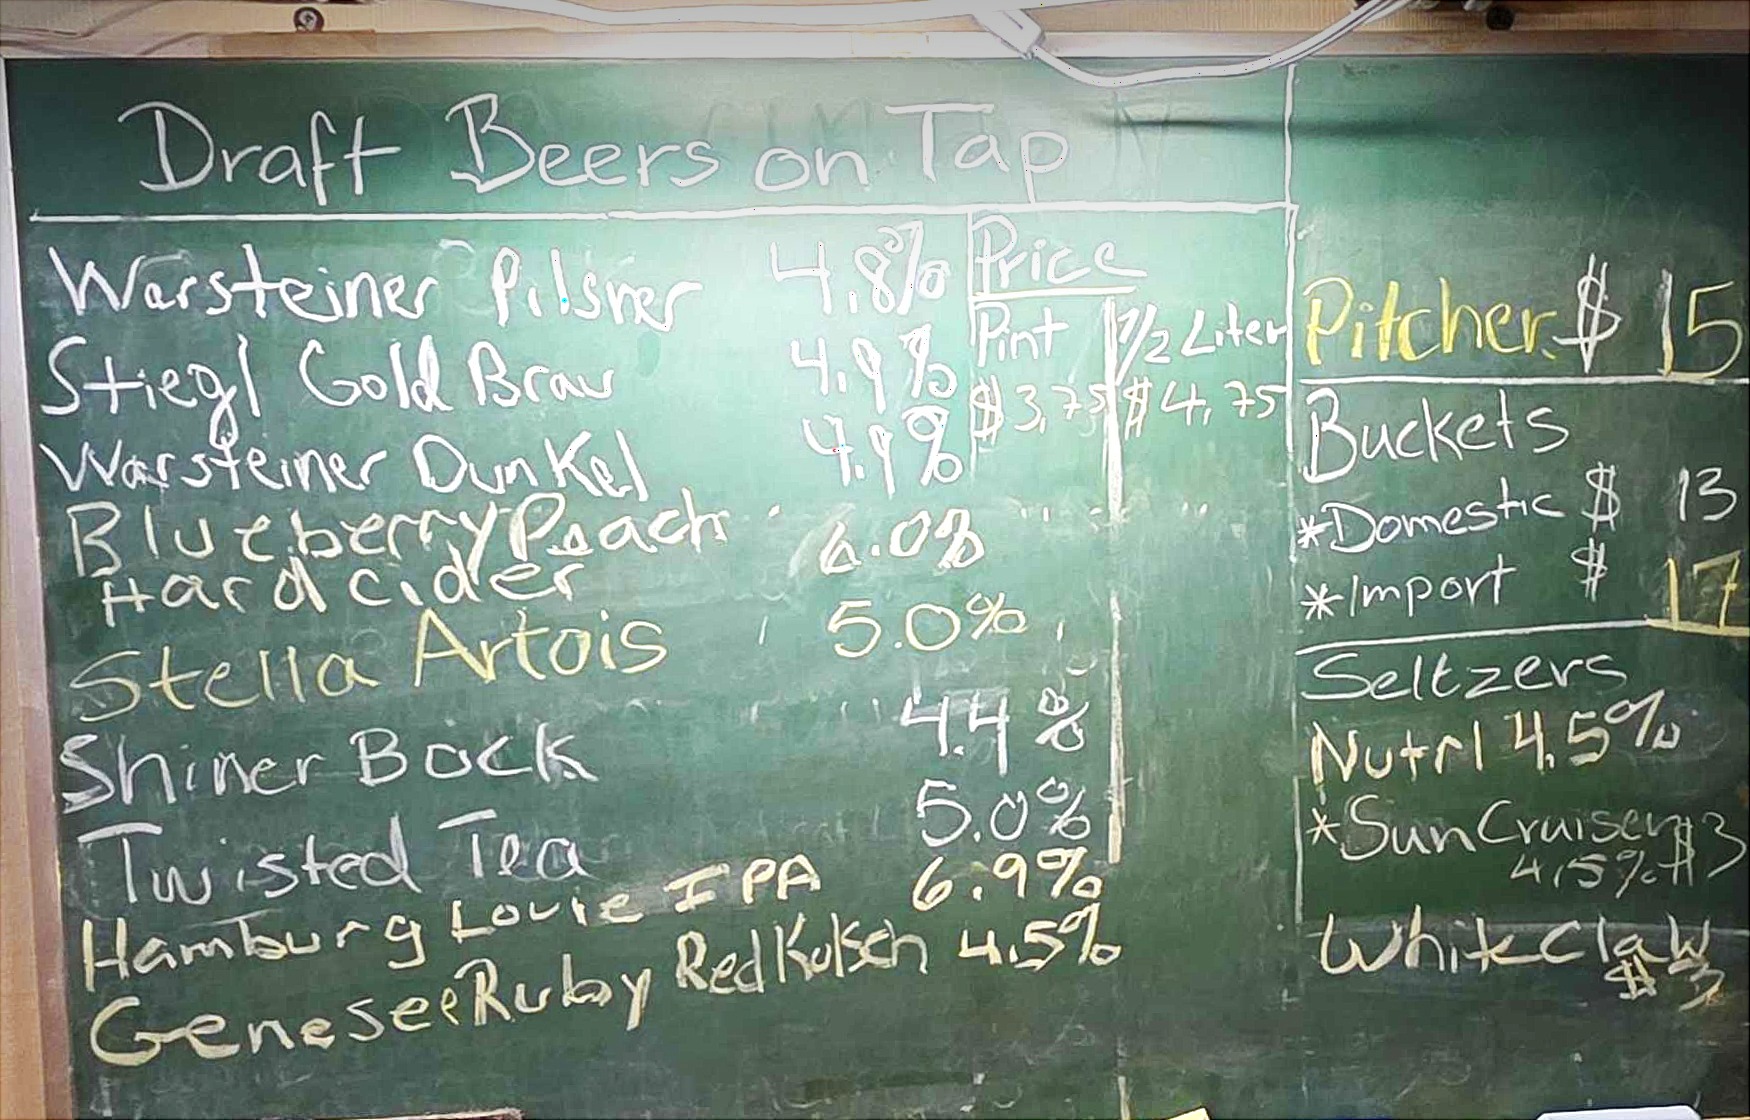 Draft Beers on Tap
Warsteiner Pilsner 4.8%
Stiegl Gold Brau 4.9%
Warsteiner Dunkel 4.9%
Blueberry Peach 6.0%
Hard cider
Stella Artois 5.0%
Shiner Bock 4.4%
Twisted Tea 5.0%
Hamburg Louie IPA 6.9%
Genesee Ruby Red Kolsch 4.5%
Price
Pint 1/2 Liter
$3.75 $4.75
Pitcher $ 15
Buckets
*Domestic $ 13
*Import $ 17
Seltzers
Nutrl 4.5%
*Sun Cruiser $3
4.5% $3
White Claw
$3